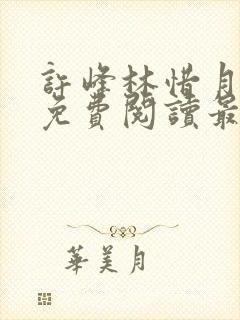 許峰林惜月
免費閱讀最
華美月